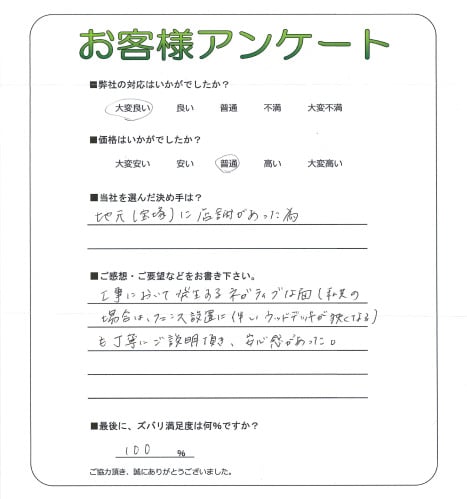 お客様アンケート
■弊社の対応はいかがでしたか？
大変良い 良い 普通 不満 大変不満
■価格はいかがでしたか？
大変安い 安い 普通 高い 大変高い
■当社を選んだ決め手は？
地元(宝塚)に店舗があった為
■ご感想・ご要望などをお書き下さい。
工事において発生するネガティブな面(私共の
場合は、フェンス設置に伴いウッドデッキが狭くなる)
も丁寧にご説明頂き、安心感があった。
■最後に、ズバリ満足度は何%ですか？
100 %
ご協力頂き、誠にありがとうございました。